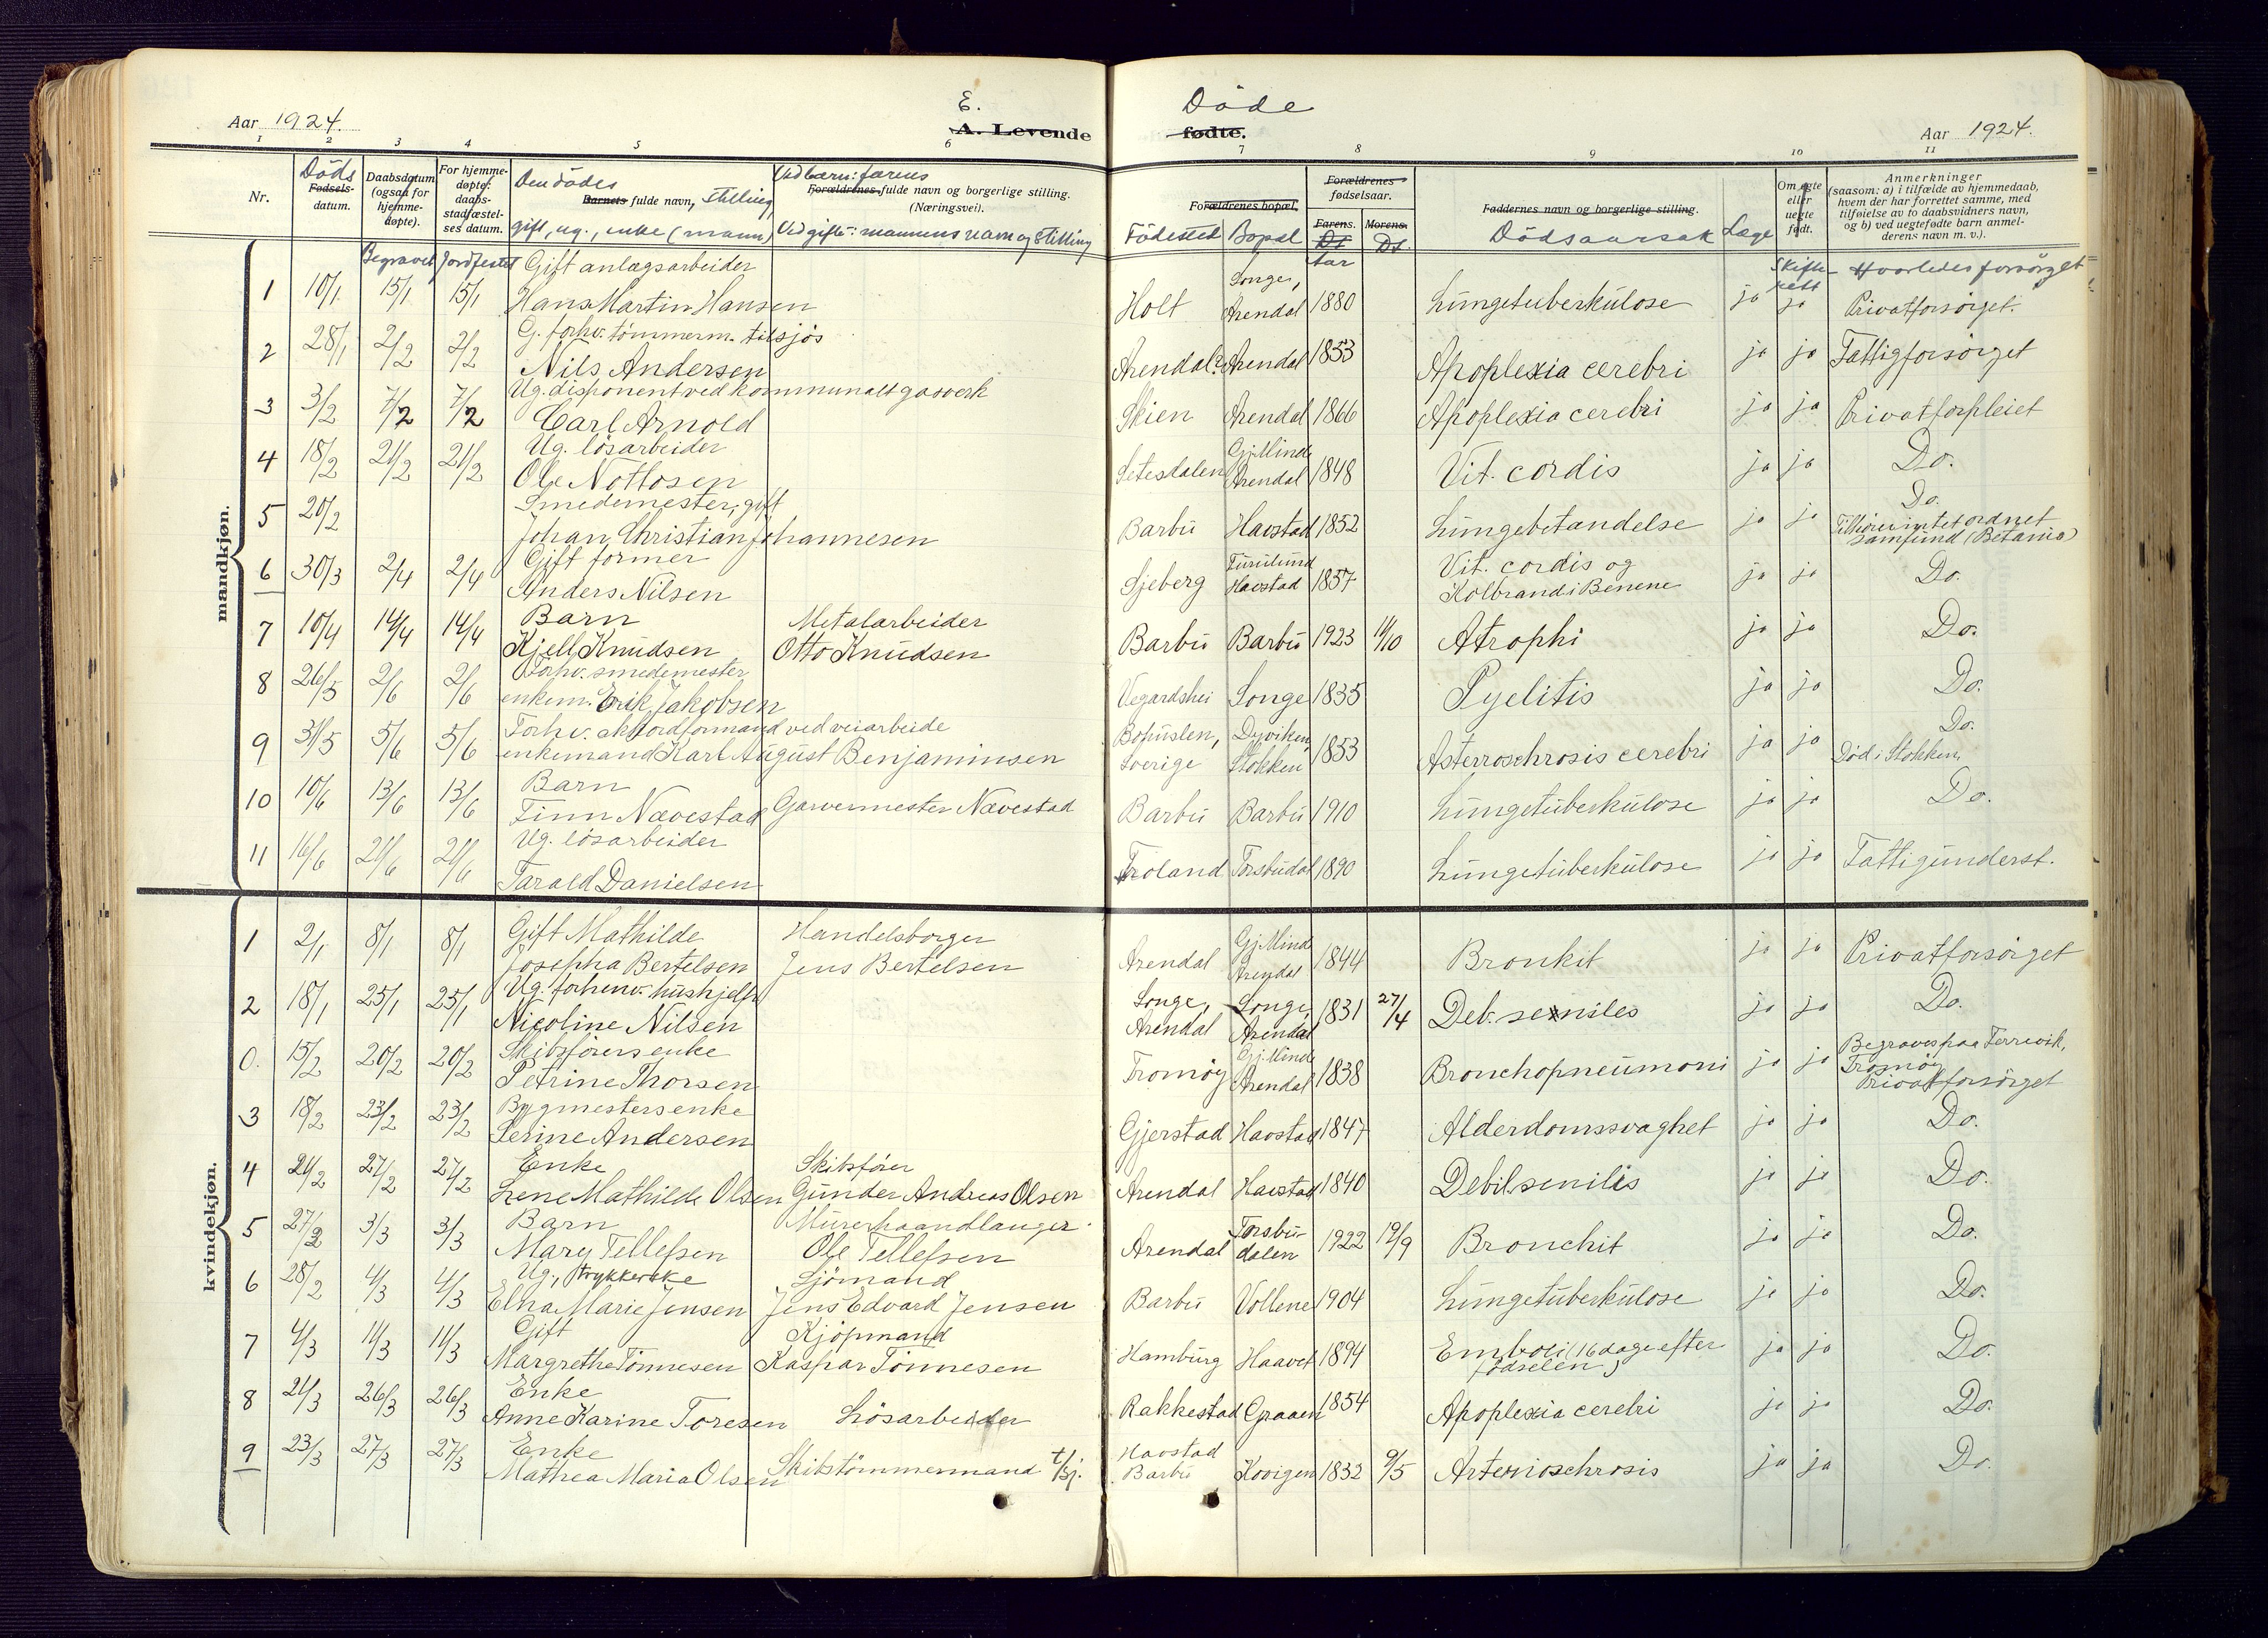 Aar 1924.
E.
A. Levende
Døde
fødte.
Aar 1924.
1 2 3 4 5 6 7 8 9 10 11
Nr.
Døds
Fødsels-
datum.
Daabsdatum
(ogsaa for
hjemme-
døpte).
For hjemme-
døpte:
daabs-
stadfæstel-
ses datum.
Den dødes
Barnets fulde navn, stilling,
gift, ug., enke (mann)
Ved barn: farens
Forældrenes fulde navn og borgerlige stilling.
(Næringsvei).
Ved gifte: mannens navn og stilling
Forældrenes bopæl.
Fødested Bopæl
Forældrenes
fødselsaar.
Farens. Morens.
Faddernes navn og borgerlige stilling.
Dødsaarsak Læge
Om egte
eller
uegte
født.
Anmerkninger
(saasom: a) i tilfælde av hjemmedaab,
hvem der har forrettet samme, med
tilføielse av to daabsvidners navn,
og b) ved uegtefødte barn anmel-
derens navn m. v.).
Begravet Jordfestet
Skifte-
rett
Hvorledes forsørget
mandkjøn.
Gift anlægsarbeider
1 10/1 15/1 15/1 Hans Martin Hansen Holt Longe, Arendal 1880 Lungetuberkulose ja ja Privatforsørget.
G. forhv. tømmerm. tilsjøs
2 28/1 2/2 2/2 Nils Andersen Arendal? Arendal 1853 Apoplexia cerebri ja ja Fattigforsørget
Ug. disponent ved kommunalt gasverk
3 3/2 7/2 7/2 Carl Arnold Skien Arendal 1866 Apoplexia cerebri ja ja Privatforpleiet
Ug. løsarbeider
4 18/2 21/2 21/2 Ole Nottosen Setesdalen Gj. Minde Arendal 1848 Vit. cordis ja ja Do.
Smedemester, gift
5 20/2 Johan Christian Johannesen Barbu Havstad 1852 Lungebetændelse ja ja Do.
Tilhører intet ordnet
samfund (Betania)
Gift former
6 30/3 2/4 2/4 Anders Nilsen Sjeberg Furulund Havstad 1857 Vit. cordis og
Kolbrand i Benene ja ja Do.
Barn Metalarbeider
7 10/4 14/4 14/4 Kjell Knudsen Otto Knudsen Barbu Barbu 1923 14/10 Atrophi ja ja Do.
Forhv. smedemester
8 26/5 2/6 2/6 enkem. Erik Jakobsen Vegardshei Longe 1835 Pyelitis ja ja Do.
Forhv. akkordformand ved veiarbeide
9 31/5 5/6 5/6 enkemand Karl August Benjaminsen Bohuslen, Sverige Dyviken, Stokken 1853 Asterroschrosis cerebri ja ja Do.
Død i Stokken
Barn
10 10/6 13/6 13/6 Finn Nævestad Garvermester Nævestad Barbu Barbu 1910 Lungetuberkulose ja ja Do.
Ug. løsarbeider
11 16/6 21/6 21/6 Tarald Danielsen Froland Torsbudal 1890 Lungetuberkulose ja ja Fattigunderst.
kvindekjøn.
Gift Mathilde Handelsborger
1 2/1 8/1 8/1 Josepha Bertelsen Jens Bertelsen Arendal Gj. Minde Arendal 1844 Bronkit ja ja Privatforsørget
Ug. forhenv. hushjelp
2 18/1 25/1 25/1 Nicoline Nilsen Longe, Arendal Longe, Arendal 1831 27/4 Deb. seniles ja ja Do.
Skibsførersenke
0. 15/2 20/2 20/2 Petrine Thorsen Tromøy Gj. Minde Arendal 1838 Bronchopneumoni ja ja Begraves paa Færvik,
Tromøy
Privatforsørget
Bygmestersenke
3 18/2 23/2 23/2 Serine Andersen Gjerstad Havstad 1847 Alderdomssvaghet ja ja Do.
Enke Skibsfører
4 21/2 27/2 27/2 Lene Mathilde Olsen Gunder Andreas Olsen Arendal Havstad 1840 Debil. senilis ja ja Do.
Barn Murerhaandlanger
5 27/2 3/3 3/3 Mary Tellefsen Ole Tellefsen Arendal Torsbu-
dalen 1922 19/9 Bronchit ja ja Do.
Ug., strykerske Sjømand
6 28/2 4/3 4/3 Elna Marie Jensen Jens Edvard Jensen Barbu Vollene 1904 Lungetuberkulose ja ja Do.
Gift Kjøpmand
7 4/3 11/3 11/3 Margrethe Tønnesen Kaspar Tønnesen Hamburg Haavet 1894 Emboli (16 dage efter
fødselen) ja ja Do.
Enke
8 21/3 26/3 26/3 Anne Karine Toresen Løsarbeider Rakkestad Graaen 1854 Apoplexia cerebri ja ja Do.
Enke
9 23/3 27/3 27/3 Mathea Maria Olsen Skibstømmermand t/sj. Havstad Barbu Kovigen 1832 9/5 Arterioschrosis ja ja Do.